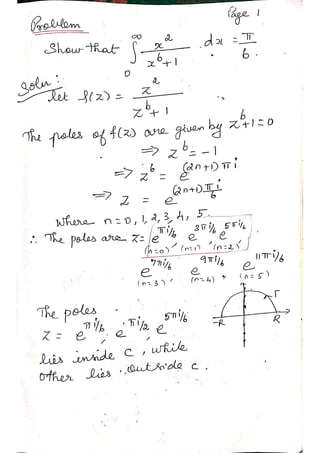 Page 1
Problem
Show that ∫₀^∞ x²/(x⁶+1) . dx = π/6.
Soln :
let f(z) = z²/(z⁶+1)
The poles of f(z) are given by z⁶+1=0
⇒ z⁶ = -1
⇒ z⁶ = e^((2n+1)πi)
⇒ z = e^((2n+1)πi/6)
Where n=0, 1, 2, 3, 4, 5.
∴ The poles are z= e^(πi/6), e^(3πi/6), e^(5πi/6)
(n=0) (n=1) (n=2)
e^(7πi/6), e^(9πi/6), e^(11πi/6)
(n=3) (n=4) (n=5)
The poles
z = e^(πi/6), e^(πi/2), e^(5πi/6)
lies inside C, while
other lies outside C.
Γ
-R R